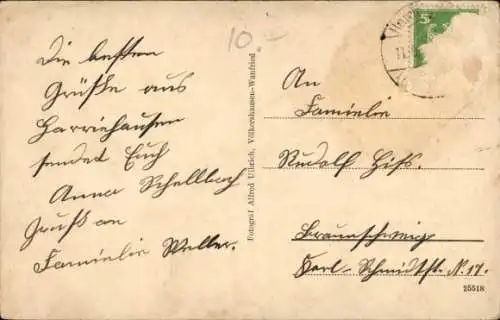 10-
Die besten
Grüße aus
Harriehausen
sendet Euch
Anna Schellbach
Gruß an
Familie Weller.
Fotograf Alfred Ullrich, Völkershausen-Wanfried
5
An
Famielie
Rudolf Hiss.
Braunschweig
Karl-Schmidtstr. N. 17.
25518